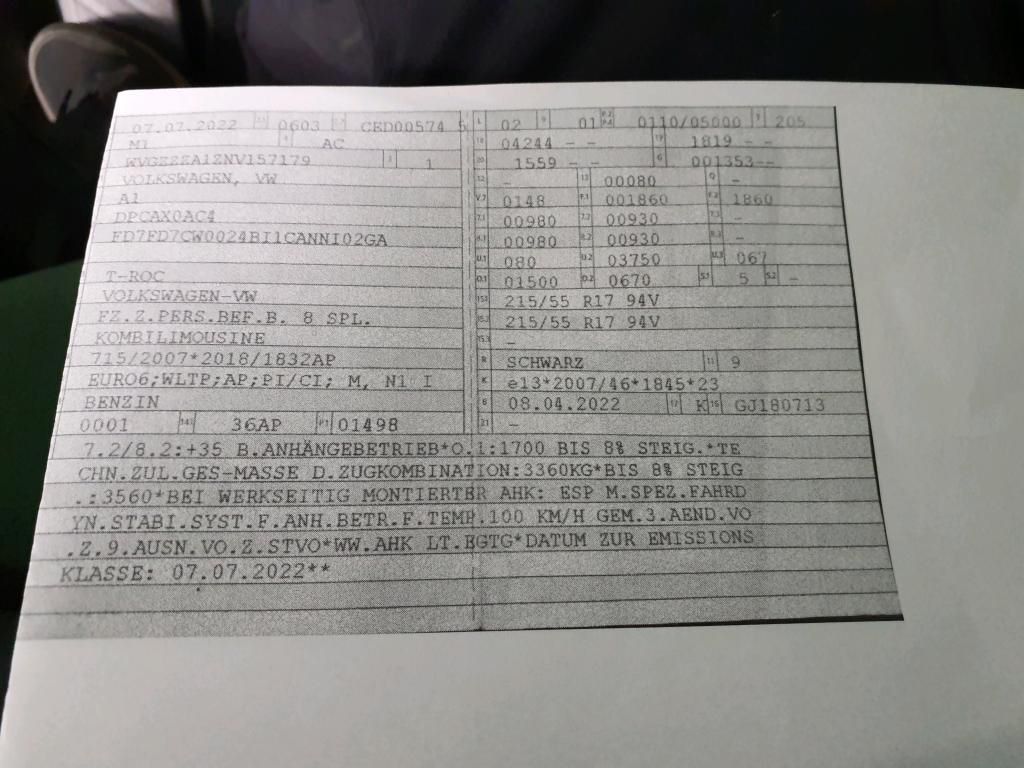 07.07.2022 0603 CED00574 5
M1 AC
WVGZZZA1ZNV157179 1
VOLKSWAGEN, VW
A1
DPCAX0AC4
FD7FD7CW0024BI1CANNI02GA
T-ROC
VOLKSWAGEN-VW
FZ.Z.PERS.BEF.B. 8 SPL.
KOMBILIMOUSINE
715/2007*2018/1832AP
EURO6;WLTP;AP;PI/CI; M, N1 I
BENZIN
0001 14.1 36AP P.1 01498
L 02 9 01 P.2 P.4 0110/05000 T 205
18 04244 - - 19 1819 - -
20 1559 - - G 001353--
12 - 13 00080 Q -
V.7 0148 F.1 001860 F.2 1860
7.1 00980 7.2 00930 7.3 -
8.1 00980 8.2 00930 8.3 -
U.1 080 U.2 03750 U.3 067
O.1 01500 O.2 0670 S.1 5 S.2 -
15.1 215/55 R17 94V
15.2 215/55 R17 94V
15.3 -
R SCHWARZ 11 9
K e13*2007/46*1845*23
6 08.04.2022 17 K 16 GJ180713
21 -
7.2/8.2:+35 B.ANHÄNGEBETRIEB*O.1:1700 BIS 8% STEIG.*TE
CHN.ZUL.GES-MASSE D.ZUGKOMBINATION:3360KG*BIS 8% STEIG
.:3560*BEI WERKSEITIG MONTIERTER AHK: ESP M.SPEZ.FAHRD
YN.STABI.SYST.F.ANH.BETR.F.TEMP.100 KM/H GEM.3.AEND.VO
.Z.9.AUSN.VO.Z.STVO*WW.AHK LT.EGTG*DATUM ZUR EMISSIONS
KLASSE: 07.07.2022**